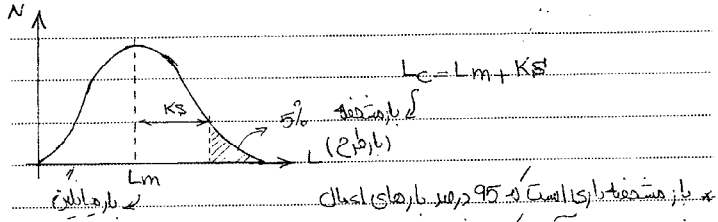 N
Lc = Lm + KS
KS
5%
بار مشخصه
(بار طرح)
L
Lm
* بار مشخصه باری است که 95 درصد بارهای اعمال